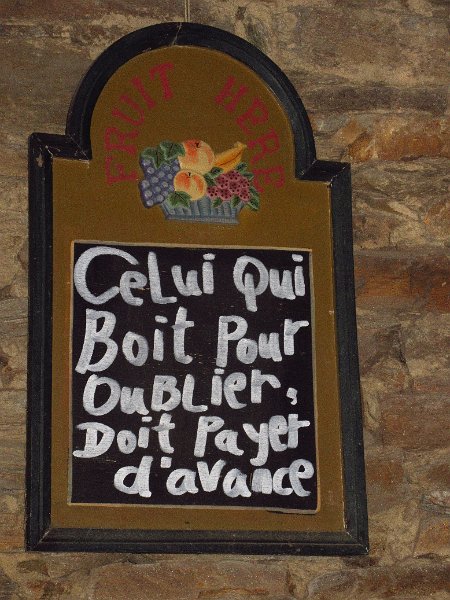 FRUIT HERE
CeLui Qui
Boit Pour
OUBLier,
Doit Payer
d'avance